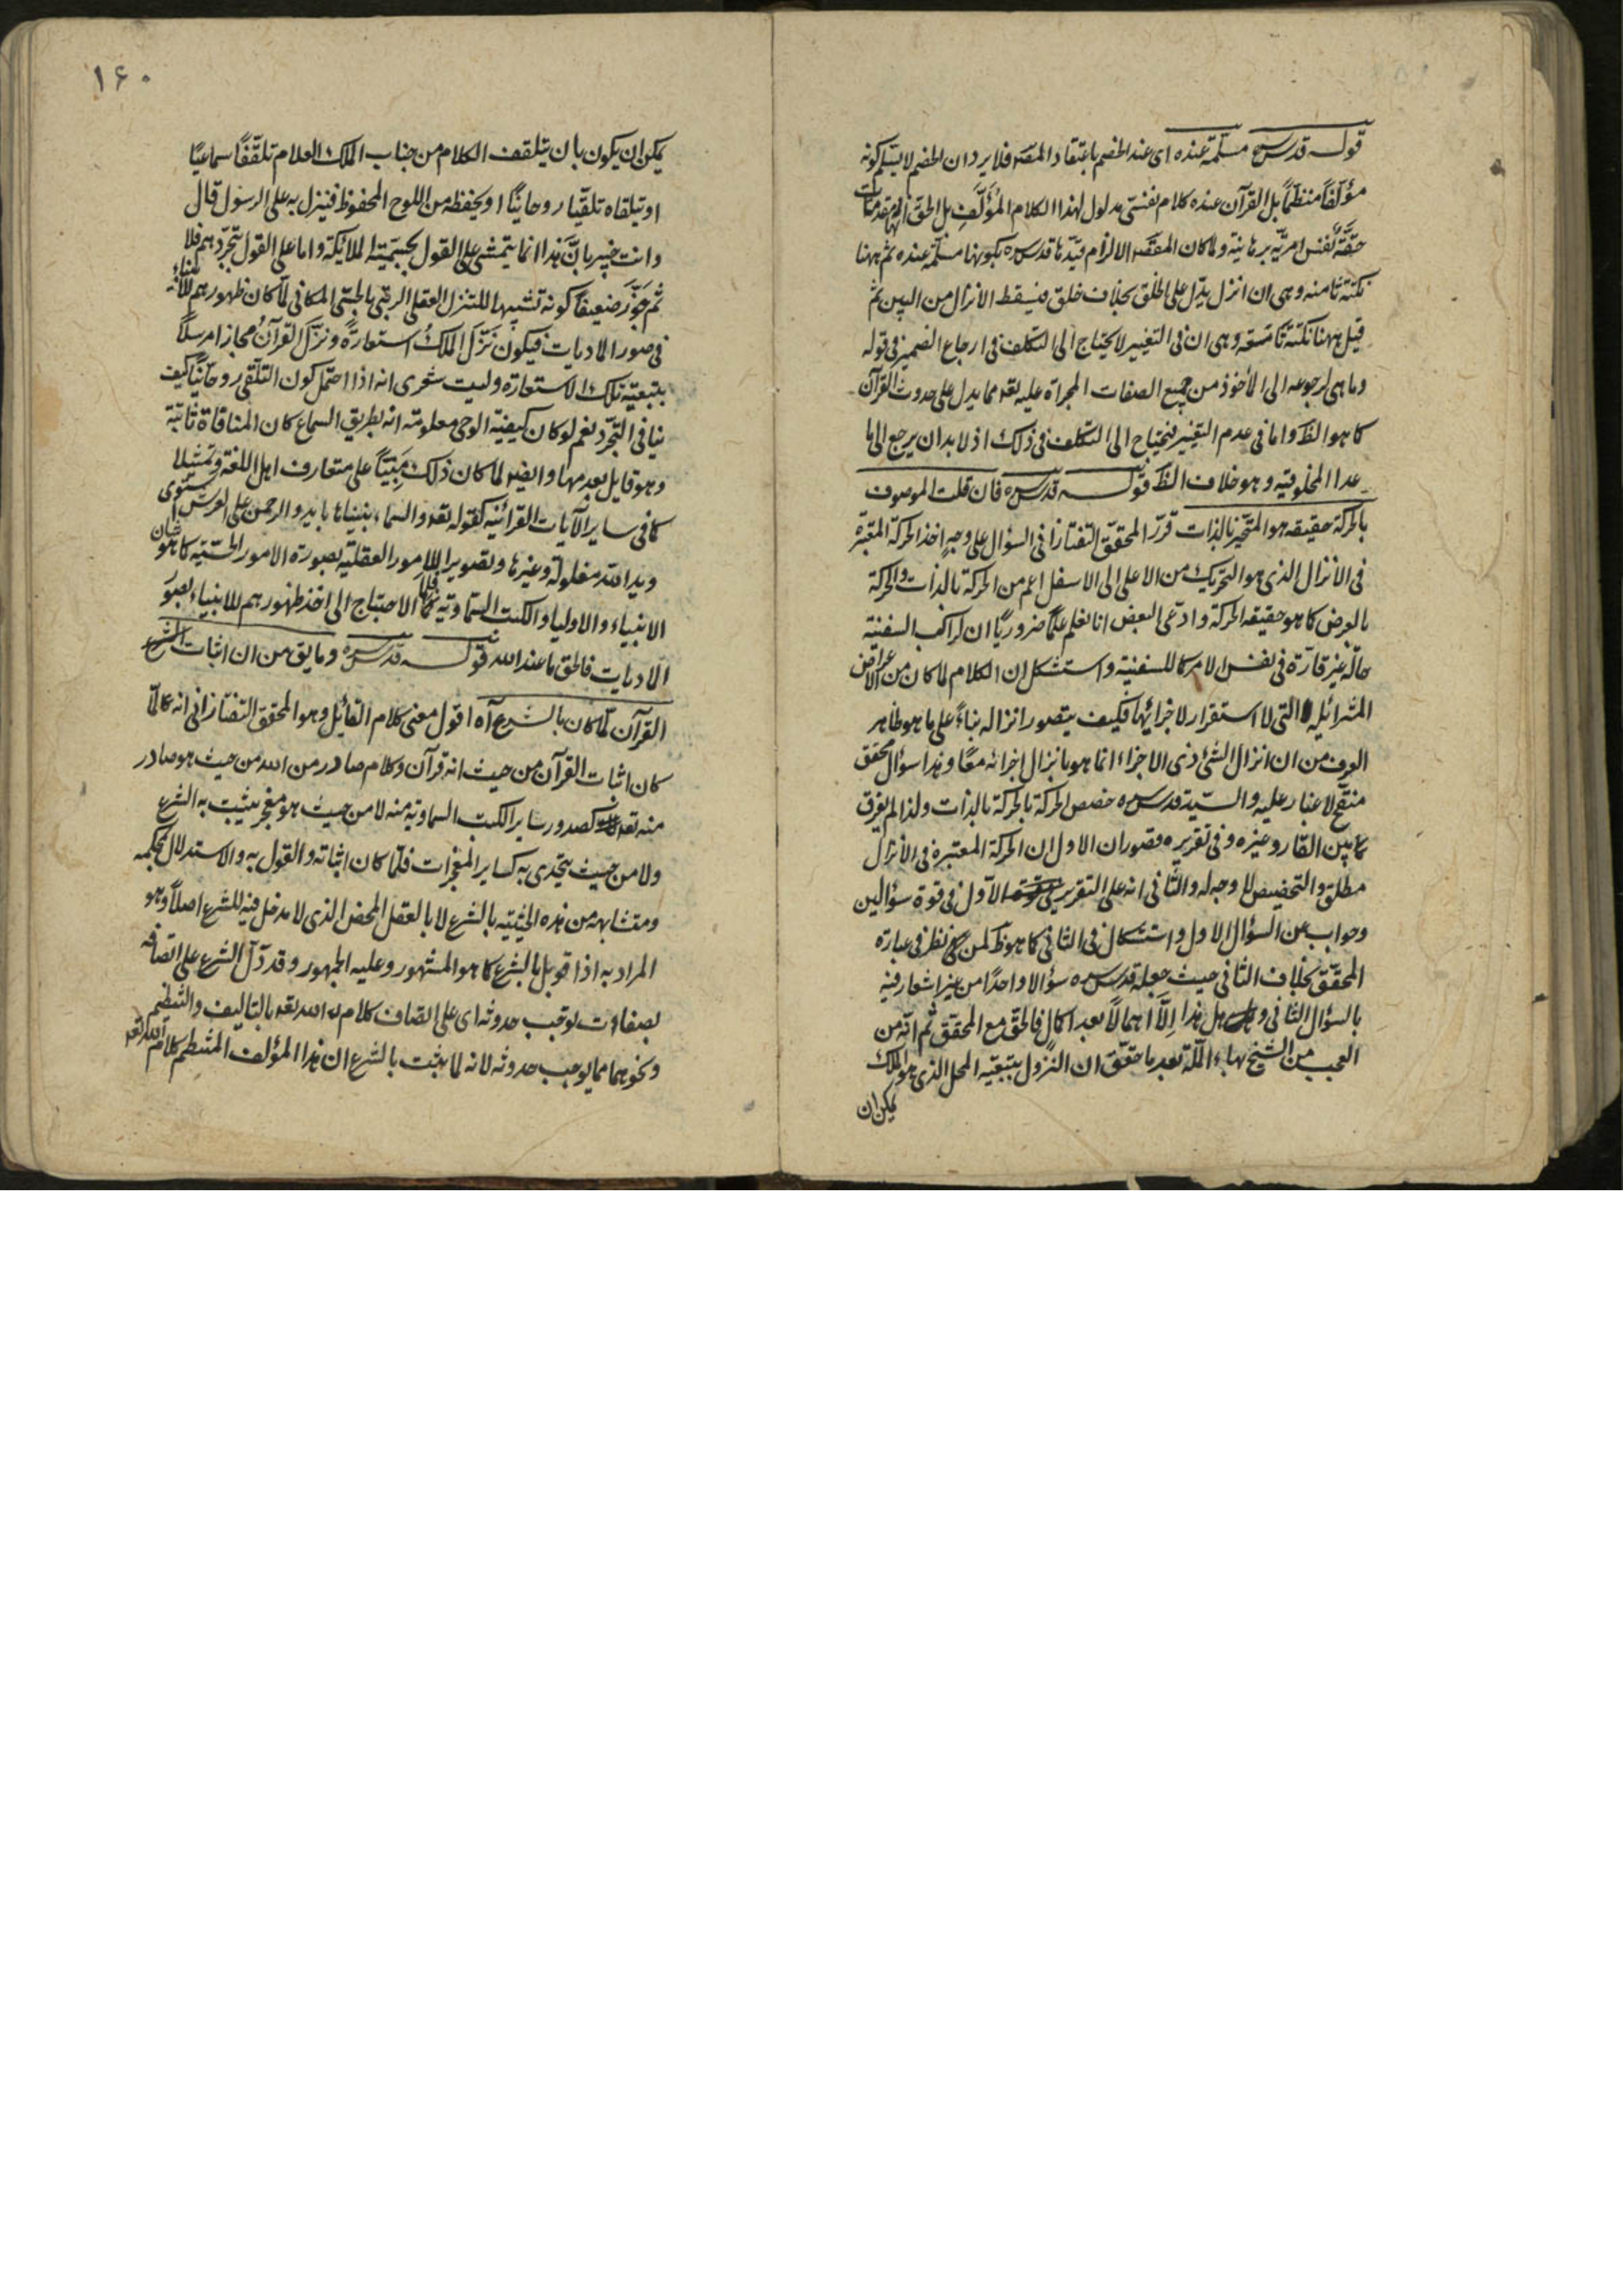 قوله قدس سره مسلمة عنده اى عند الخصم باعتقاد المقصد فلا يرد ان الخصم لا يسلم كونه
مؤلفًا منظمًا بل القرآن عنده كلام نفسى مدلول لهذا الكلام المؤلَّف بل الحق انها مقدمات
حقة نفس امرية برهانية ولما كان المقصد الالزام قيدها قدس سره بكونها مسلمة عنده ثم ههنا
نكتة ثامنة وهى ان انزل يدل على الخلق بخلاف خلق فيسقط الانزال من البين ثم
قيل ههنا نكتة تاسعة وهى ان فى التغيير لا يحتاج الى التكلف فى ارجاع الضمير فى قوله
وما هى لرجوعه الى المأخوذ من جميع الصفات المجراة عليه تعه مما يدل على حدوث القرآن
كما هو الظ واما فى عدم التغيير فيحتاج الى التكلف فى ذلك اذ لا بد ان يرجع الى ما
عدا المخلوقية وهو خلاف الظ قوله قدس سره فان قلت الموصوف
بالحركة حقيقة هو المتحيز بالذات قرر المحقق التفتازانى السؤال على وجه اخذ الحركة المعتبرة
فى الانزال الذى هو التحريك من الاعلى الى الاسفل اعم من الحركة بالذات والحركة
بالعرض كما هو حقيقة الحركة وادعى البعض انا نعلم علمًا ضروريًا ان لراكب السفينة
حالة غير قارّة فى نفس الامر كما للسفينة واستشكل ان الكلام لما كان من الاعراض
التى لا استقرار لاجزائها فكيف يتصور انزاله بناءً على ما هو ظاهر
العرف من ان انزال الشئ ذى الاجزاء انما هو بانزال اجزائه معًا وهذا سؤال محقق
منقّح لا غبار عليه والسيد قدس سره خصص الحركة بالحركة بالذات ولذا لم يفرق
ما بين القار وغيره وفى تقريره قصوران الاول ان الحركة المعتبرة فى الانزال
مطلق والتخصيص لا وجه له والثانى انه على التقرير الاول فى قوة سؤالين
وجواب عن السؤال الاول واستشكال فى الثانى كما هو ظ لمن نظر فى عبارة
المحقق بخلاف الثانى حيث جعله قدس سره سؤالا واحدًا من غير اشعار فيه
بالسؤال الثانى وهل هذا إلّا اهمالًا بعد اكمال فالحق مع المحقق ثم انه من
العجب من الشيخ بهاء الملّة بعد ما حقق ان النزول بتبعية المحل الذى هو الملك
يمكن ان
١٦٠
يمكن ان يكون بان يتلقف الكلام من جناب الملك العلام تلقفًا سماعيًا
او يتلقاه تلقيا روحانيًا او يحفظه من اللوح المحفوظ فينزل به على الرسول قال
وانت خبير بانّ هذا انما يتمشى على القول بجسمية الملائكة واما على القول بتجردهم فلا
ثم جوّز ضعيفًا كونه تشبيها للتنزل العقلى الرتبى بالحسّى المكانى لما كان ظهورهم للانبياء
فى صور الماديات فيكون نزّل الملك استعارةً ونزّل القرآنُ مجازا مرسلًا
بتبعية تلك الاستعارة وليت شعرى انه اذا احتمل كون التلقى روحانيًا كيف
ينافى التجرّد نعم لو كان كيفية الوحى معلومة انه بطريق السماع كان المنافاة ثابتة
وهو قايل بعدمها وايضا لما كان ذلك مبنيًا على متعارف اهل اللغة وتمثيلا
كما فى ساير الآيات القرآنية كقوله تعه والسماء بنيناها بايد والرحمن على العرش استوى
ويد الله مغلولة وغيرها وتصويرا للامور العقلية بصورة الامور الحسّية كما هو شان
الانبياء والاولياء والكتب السماوية فما الاحتياج الى اخذ ظهورهم للانبياء بصور
الماديات فالحق ما عند الله قوله قدس سره وما يق من ان اثبات الشرع
القرآن لما كان بالشرع آه اقول معنى كلام القائل وهو المحقق التفتازانى انه لمّا
كان اثبات القرآن من حيث انه قرآن وكلام صادر من الله من حيث هو صادر
منه تعه كصدور ساير الكتب السماوية منه لا من حيث هو معجز يثبت به الشرع
ولا من حيث يتحدى به كساير المعجزات فلمّا كان اثباته والقول به والاستدلال بمحكمه
ومتشابهه من هذه الحيثية بالشرع لا بالعقل المحض الذى لا مدخل فيه للشرع اصلًا وهو
المراد به اذا قوبل بالشرع كما هو المشهور وعليه الجمهور وقد دلّ الشرع على اتصافه
بصفات توجب حدوثه اى على اتصاف كلام الله تعه بالتاليف والتنظيم
ونحوهما مما يوجب حدوثه لانه لما ثبت بالشرع ان هذا المؤلف المنتظم كلام الله تعه